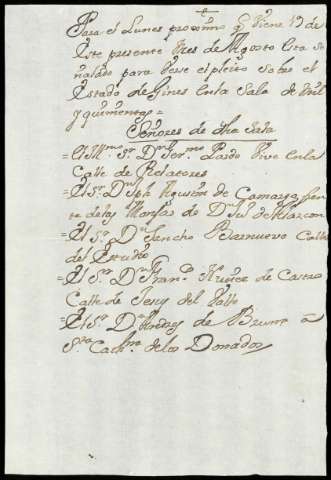 +
Para el Lunes proximo q. viene 13 de
este presente Mes de Agosto esta se
ñalado para verse el pleito sobre el
Estado de Gines en la Sala de Mil
y quinientas =
Señores de dha Sala
= El Illmo. Sr. Dn. Ger.mo Pardo vive en la
Calle de Relatores
= El Sr. Dn. Jph Agustin de Camargo fren
te de las Monjas de Dn. Ju.º de Alarcon
= El Sr. Dn. Sancho Barnuevo Calle
del Estudio
= El Sr. Dn. Fran.co Nuñez de Castro
Calle de Jesus del Valle
= El Sr. Dn. Andres de Bruna a
Sta. Cath.na de los Donados